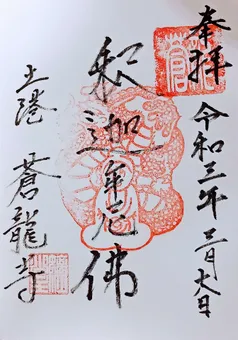 奉拝
令和三年三月六日
釈迦牟尼佛
土湯
蒼龍寺